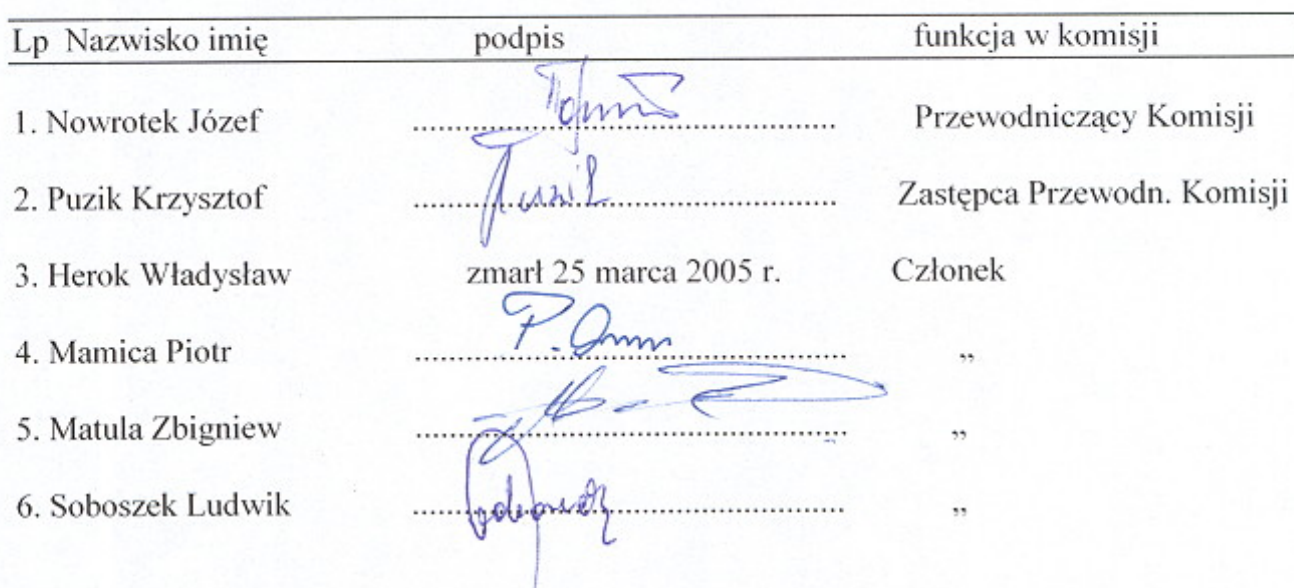 Lp Nazwisko imię podpis funkcja w komisji
1. Nowrotek Józef ........................................ Przewodniczący Komisji
2. Puzik Krzysztof ........................................ Zastępca Przewodn. Komisji
3. Herok Władysław zmarł 25 marca 2005 r. Członek
4. Mamica Piotr ........................................ „
5. Matula Zbigniew ........................................ „
6. Soboszek Ludwik ........................................ „